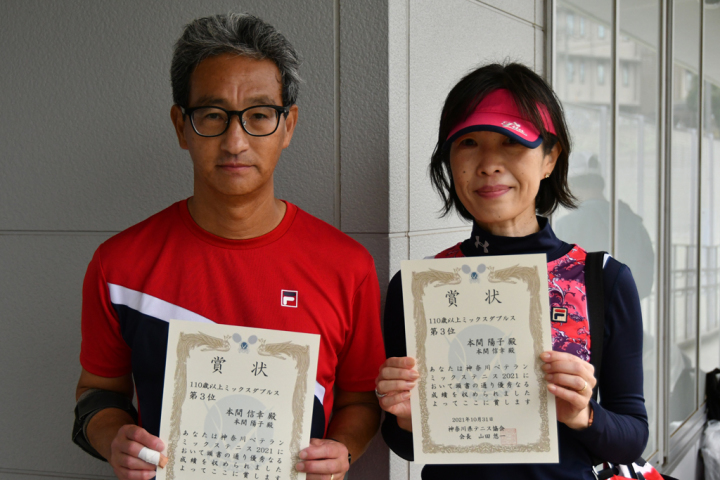 FILA
賞状
110歳以上ミックスダブルス
第3位
本間 信幸 殿
本間 陽子 殿
あなたは神奈川ベテラン
ミックステニス2021に
おいて頭書の通り優秀なる
成績を収められました
FILA
賞状
110歳以上ミックスダブルス
第3位
本間 陽子 殿
本間 信幸 殿
あなたは神奈川ベテラン
ミックステニス2021に
おいて頭書の通り優秀なる
成績を収められました
よってここに賞します
2021年10月31日
神奈川県テニス協会
会長 山田 悠一